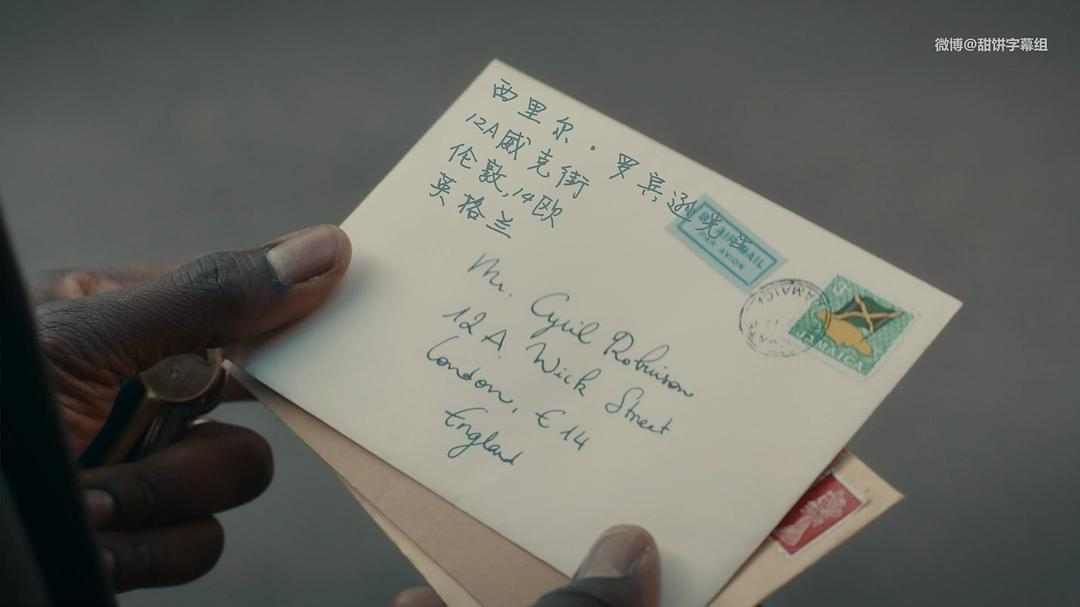 微博@甜饼字幕组
西里尔·罗宾逊先生
12A威克街
伦敦,14欧
英格兰
BY AIR MAIL
PAR AVION
JAMAICA
JAMAICA
Mr. Cyril Robinson
12 A. Wick Street
London, E 14
England